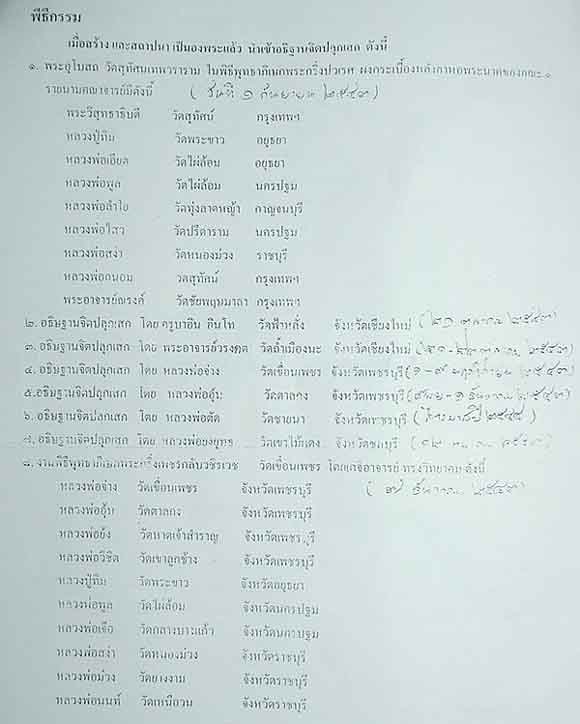 พิธีกรรม
เมื่อสร้าง และสถาปนา เป็นองพระแล้ว นำเข้าอธิฐานจิตปลุกเสก ดังนี้
๑. พระอุโบสถ วัดสุทัศนเทพวราราม ในพิธีพุทธาภิเษกพระกริ่งปวเรศ ผงกระเบื้องหลังคาหอพระนาคของคณะ ๑
รายนามคณาจารย์มีดังนี้ (วันที่ ๑ กันยายน ๒๕๔๓)
พระวิสุทธาธิบดี วัดสุทัศน์ กรุงเทพฯ
หลวงปู่ทิม วัดพระขาว อยุธยา
หลวงพ่อเอียด วัดไผ่ล้อม อยุธยา
หลวงพ่อพูล วัดไผ่ล้อม นครปฐม
หลวงพ่อลำไย วัดทุ่งลาดหญ้า กาญจนบุรี
หลวงพ่อใสว วัดปรีดาราม นครปฐม
หลวงพ่อสง่า วัดหนองม่วง ราชบุรี
หลวงพ่อถนอม วัดสุทัศน์ กรุงเทพฯ
พระอาจารย์ณรงค์ วัดชัยพฤษมาลา กรุงเทพฯ
๒. อธิษฐานจิตปลุกเสก โดย ครูบาอิน อินโท วัดฟ้าหลั่ง จังหวัดเชียงใหม่ ตุลาคม ๒๕๔๓)
๓. อธิษฐานจิตปลุกเสก โดย พระอาจารย์วรงคต วัดถ้ำเมืองนะ จังหวัดเชียงใหม่ ตุลาคม ๒๕๔๓)
๔. อธิษฐานจิตปลุกเสก โดย หลวงพ่อจ่าง วัดเขื่อนเพชร จังหวัดเพชรบุรี (๑-๙ พฤศจิกายน ๒๕๔๓)
๕. อธิษฐานจิตปลุกเสก โดย หลวงพ่ออุ้น วัดตาลกง จังหวัดเพชรบุรี ธันวาคม ๒๕๔๓)
๖. อธิษฐานจิตปลุกเสก โดย หลวงพ่อตัด วัดชายนา จังหวัดเพชรบุรี (ไตรมาสปี ๒๕๔๔)
๗. อธิษฐานจิตปลุกเสก โดย หลวงพ่อยงยุทธ วัดเขาไม้แดง จังหวัดชลบุรี
๘. งานพิธีพุทธาภิเษกพระกริ่งเพชรกลับวชิรเวช วัดเขื่อนเพชร โดยเกจิอาจารย์ ทรงวิทยาคม ดังนี้
หลวงพ่อจ่าง วัดเขื่อนเพชร จังหวัดเพชรบุรี ธันวาคม ๒๕๔๓)
หลวงพ่ออุ้น วัดตาลกง จังหวัดเพชรบุรี
หลวงพ่อยิ้ง วัดหาดเจ้าสำราญ จังหวัดเพชรบุรี
หลวงพ่อวิชิต วัดเขาลูกช้าง จังหวัดเพชรบุรี
หลวงปู่ทิม วัดพระขาว จังหวัดอยุธยา
หลวงพ่อพูล วัดไผ่ล้อม จังหวัดนครปฐม
หลวงพ่อเจือ วัดกลางบางแก้ว จังหวัดนครปฐม
หลวงพ่อสง่า วัดหนองม่วง จังหวัดราชบุรี
หลวงพ่อม่วง วัดยางงาม จังหวัดราชบุรี
หลวงพ่อนนท์ วัดเหนือวน จังหวัดราชบุรี